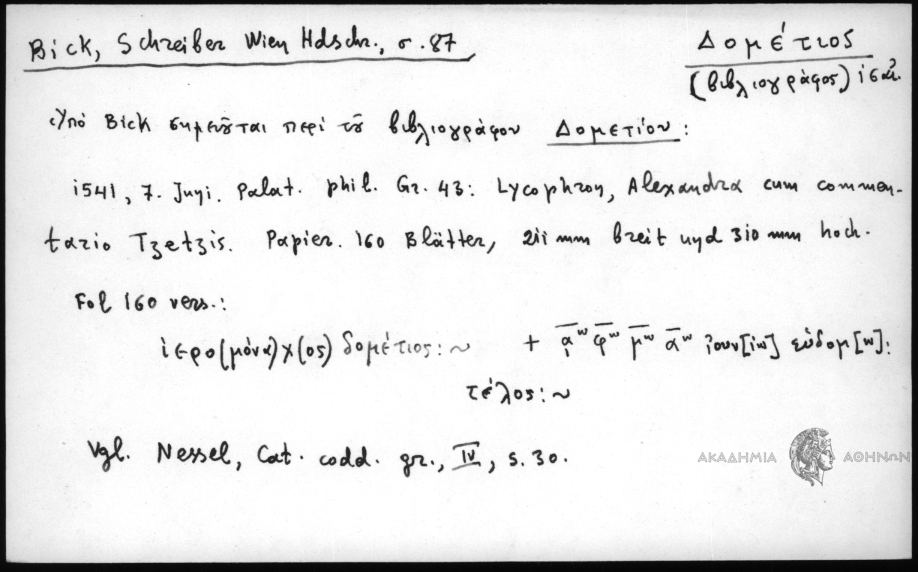 Bick, Schreiber Wien Hdschr., σ. 87
Δομέτιος
(βιβλιογράφος) ις αἰ.
Ὑπὸ Bick σημειοῦται περὶ τοῦ βιβλιογράφου Δομετίου:
1541, 7. Juni. Palat. phil. Gr. 43: Lycophron, Alexandra cum commen-
tario Tzetzis. Papier. 160 Blätter, 211 mm breit und 310 mm hoch.
Fol 160 vers.:
ἱερο(μόνα)χ(ος) δομέτιος:~ + ᾳω φω μω αω ἰουν[ίω] εὐδομ[ω]:
τέλος:~
Vgl. Nessel, Cat. codd. gr., IV, S. 30.
ΑΚΑΔΗΜΙΑ ΑΘΗΝΩΝ